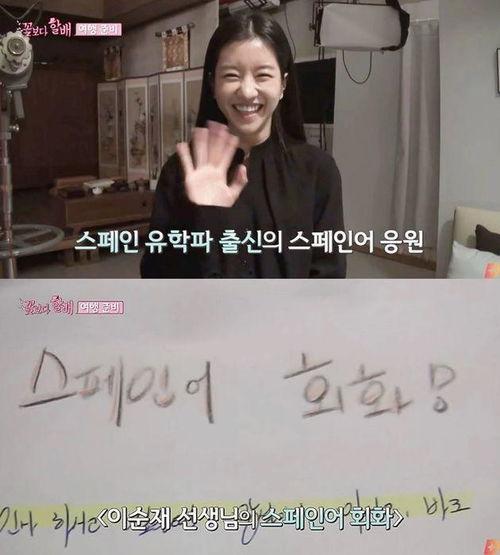 꽃보다 할배 여행 준비
스페인 유학파 출신의 스페인어 응원
꽃보다 할배 여행 준비
스페인어 회화
<이순재 선생님의 스페인어 회화>
하시고
바로